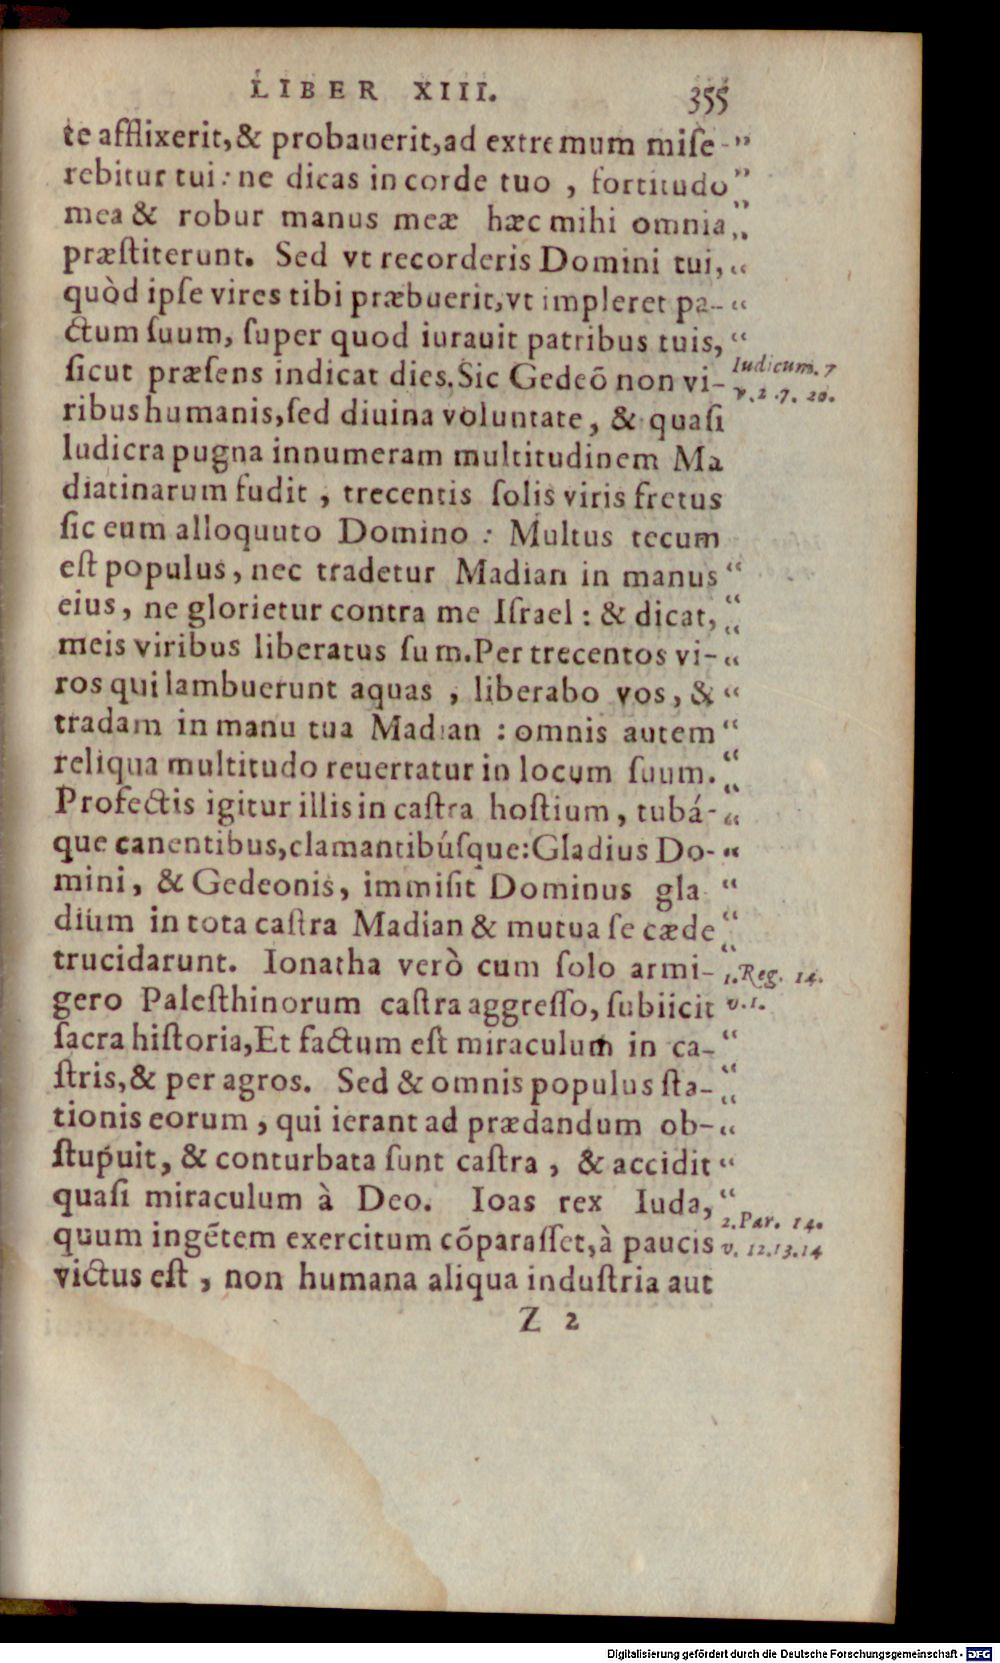 LIBER XIII. 355
te afflixerit,& probauerit,ad extremum miſe-”
rebitur tui: ne dicas in corde tuo , fortitudo”
mea & robur manus meæ hæc mihi omnia”
præſtiterunt. Sed vt recorderis Domini tui,“
quòd ipſe vires tibi præbuerit,vt impleret pa-“
ctum ſuum, ſuper quod iurauit patribus tuis,“
ſicut præſens indicat dies.Sic Gedeõ non vi- Iudicum. 7
ribus humanis,ſed diuina voluntate, & quaſi v.2.7.20.
ludicra pugna innumeram multitudinem Ma
diatinarum fudit , trecentis ſolis viris fretus
ſic eum alloquuto Domino : Multus tecum
eſt populus, nec tradetur Madian in manus“
eius, ne glorietur contra me Iſrael : & dicat,“
meis viribus liberatus ſum.Per trecentos vi-“
ros qui lambuerunt aquas , liberabo vos, &“
tradam in manu tua Madian : omnis autem“
reliqua multitudo reuertatur in locum ſuum.“
Profectis igitur illis in caſtra hoſtium, tubá-“
que canentibus,clamantibúſque:Gladius Do-“
mini, & Gedeonis, immiſit Dominus gla“
dium in tota caſtra Madian & mutua ſe cæde“
trucidarunt. Ionatha verò cum ſolo armi- 1.Reg. 14.
gero Paleſthinorum caſtra aggreſſo, ſubiicit v.1.
ſacra hiſtoria,Et factum eſt miraculum in ca-“
ſtris,& per agros. Sed & omnis populus ſta-“
tionis eorum , qui ierant ad prædandum ob-“
ſtupuit, & conturbata ſunt caſtra , & accidit“
quaſi miraculum à Deo. Ioas rex Iuda,“ 2.Par. 14.
quum ingẽtem exercitum cõparaſſet,à paucis v. 12.13.14
victus eſt , non humana aliqua induſtria aut
Z 2
Digitalisierung gefördert durch die Deutsche Forschungsgemeinschaft - DFG